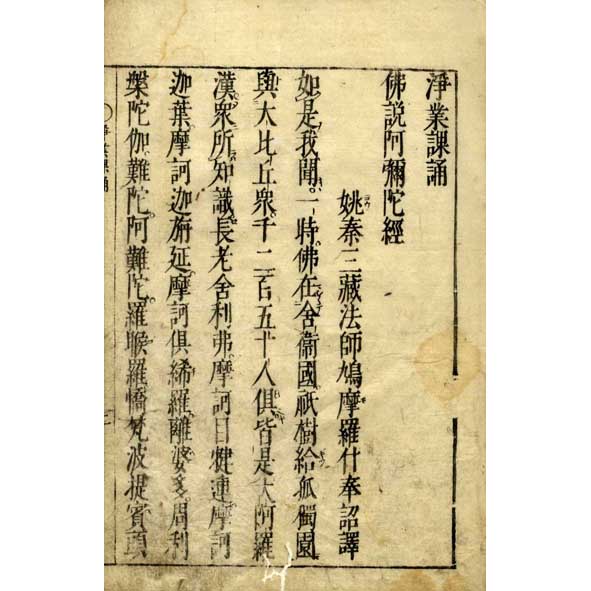 淨業課誦
佛說阿彌陀經
姚秦三藏法師鳩摩羅什奉詔譯
如是我聞。一時佛在舍衞國祇樹給孤獨園
與大比丘衆千二百五十人俱皆是大阿羅
漢衆所知識長老舍利弗摩訶目犍連摩訶
迦葉摩訶迦旃延摩訶俱絺羅離婆多周利
槃陀伽難陀阿難陀羅睺羅憍梵波提賓頭